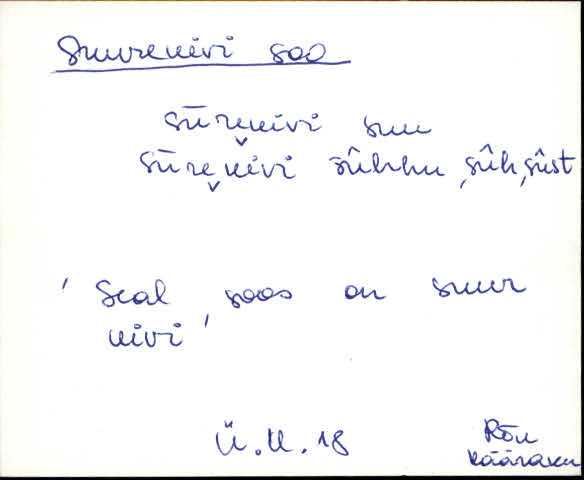 Suurekivi soo
sūrekivi suu
sūrekivi sûhhu, sûh, sûst
' Seal soos on suur
kivi '
Ü.K. 18
Rõu
Kääraku